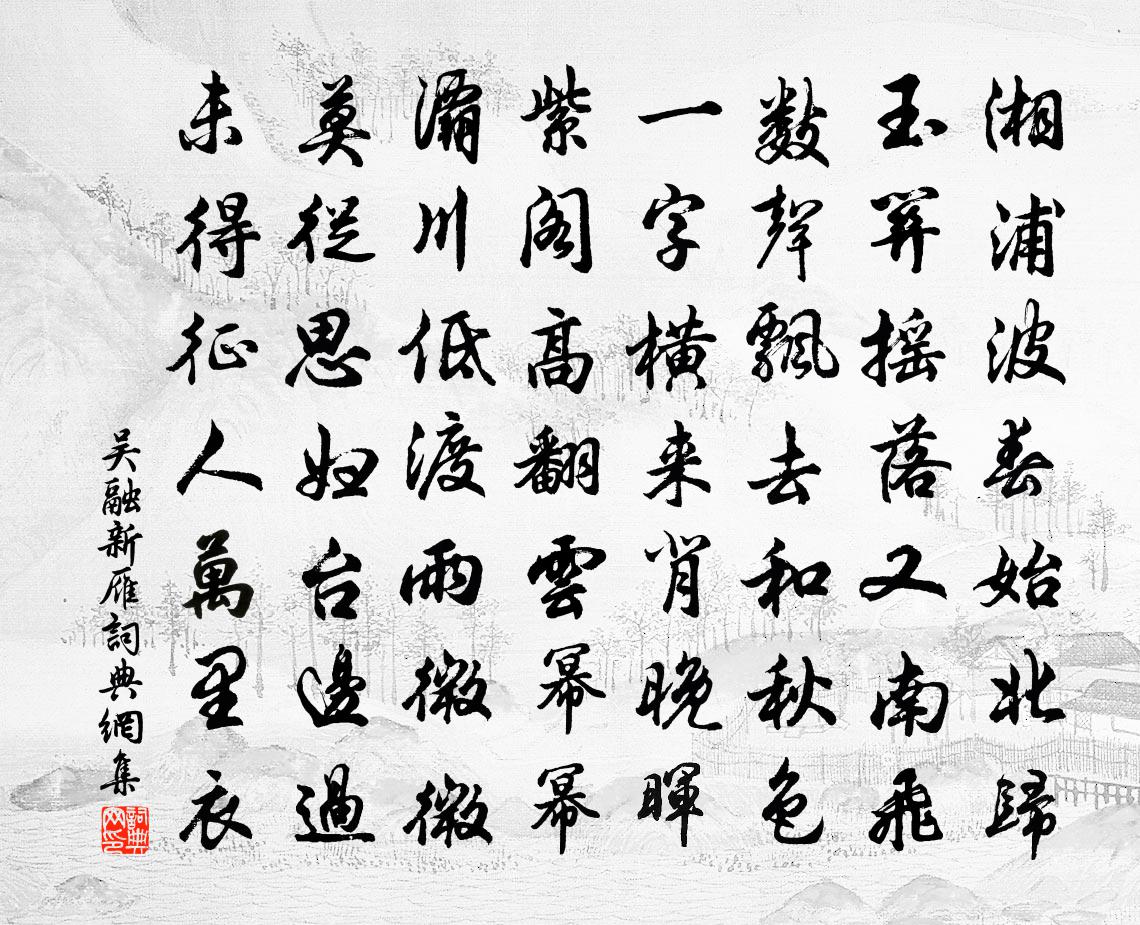 湘浦波春始北歸
玉關搖落又南飛
數聲飄去和秋色
一字橫來背晚暉
紫閣高翻雲冪冪
灞川低渡雨微微
莫從思婦台邊過
未得征人萬里衣
吴融新雁詞典網集
詞典網印